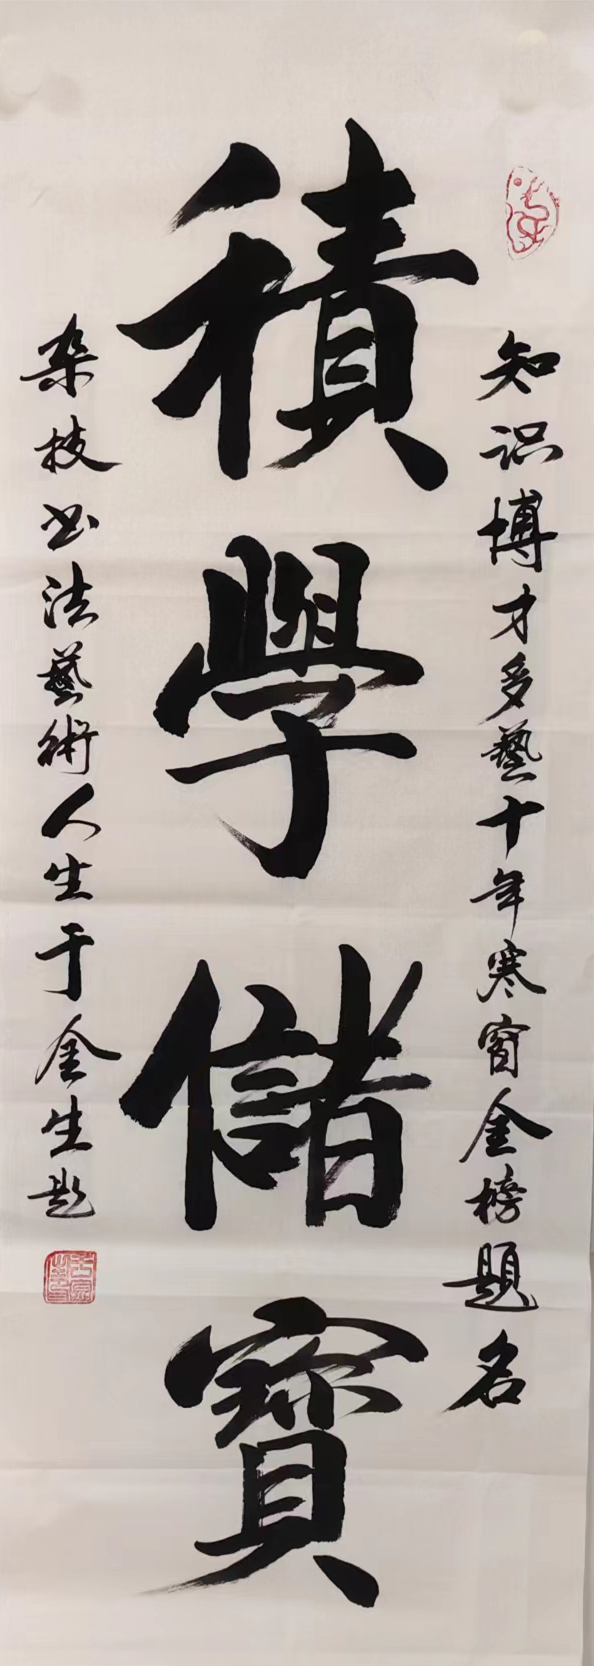 知识博才多藝十年寒窗金榜題名
積學儲寶
杂技书法藝術人生于金生题